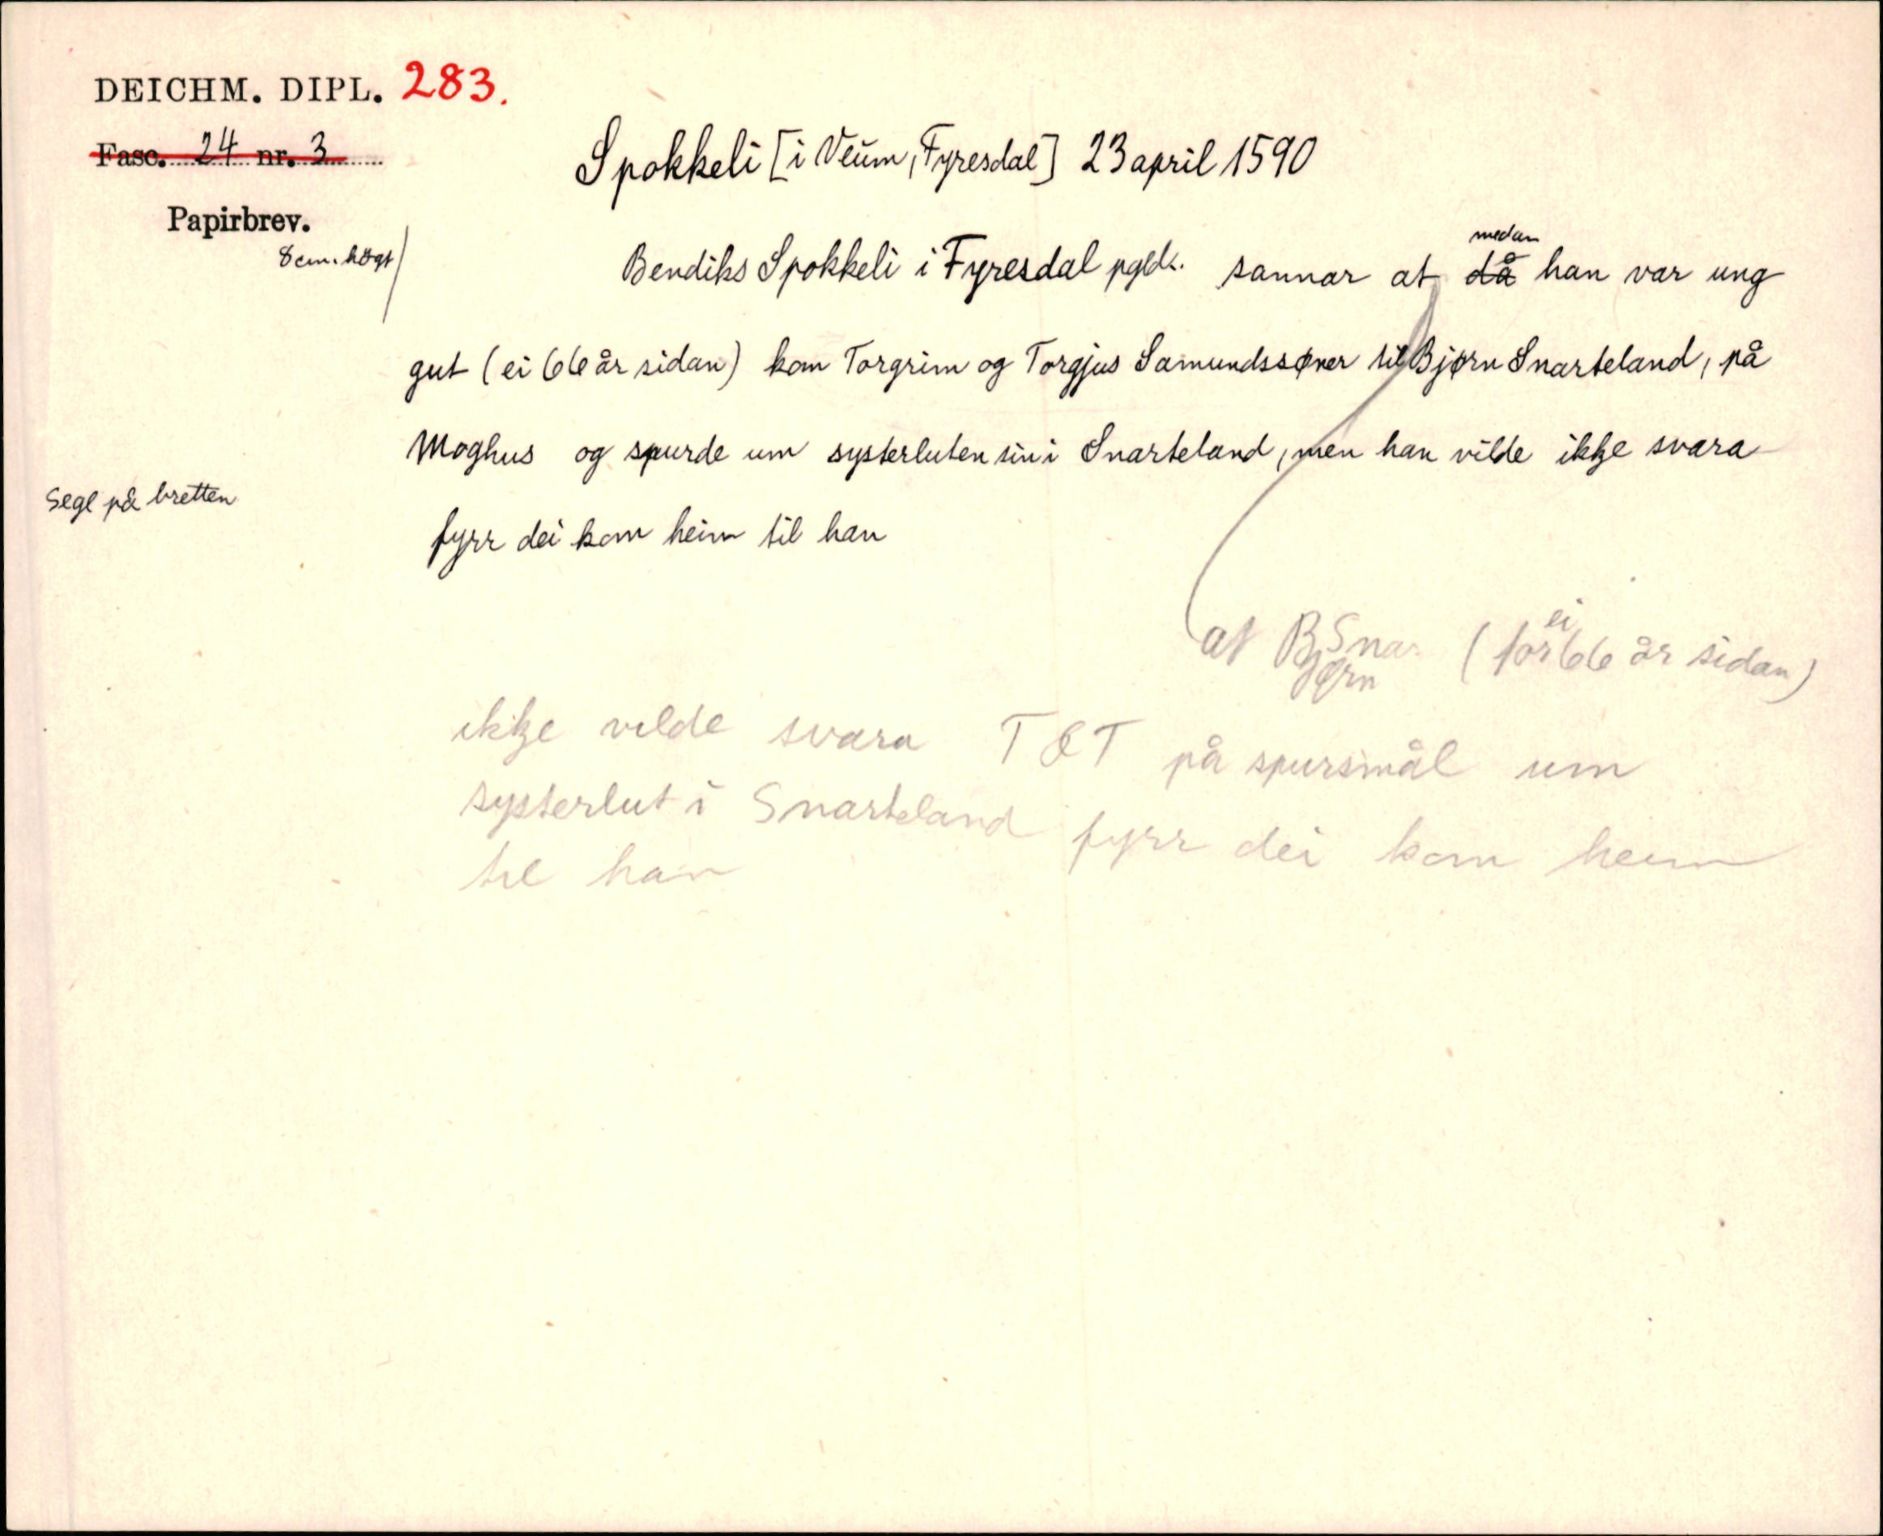 DEICHM. DIPL. 283.
Fasc. 24 nr. 3
Papirbrev.
8 cm. högt
Spokkeli [i Veum, Fyresdal] 23 april 1590
medan
Bendiks Spokkeli i Fyresdal pgld. sannar at då han var ung
gut (ei 66 år sidan) kom Torgrim og Torgjus Samundssøner til Bjørn Snarteland, på
Moghus og spurde um systerluten sin i Snarteland, men han vilde ikkje svara
Segl på bretten
fyrr dei kom heim til han
ei
at Bjørn Snar (for 66 år sidan)
ikkje vilde svara T & T på spursmål um
systerlut i Snarteland fyrr dei kom heim
til han